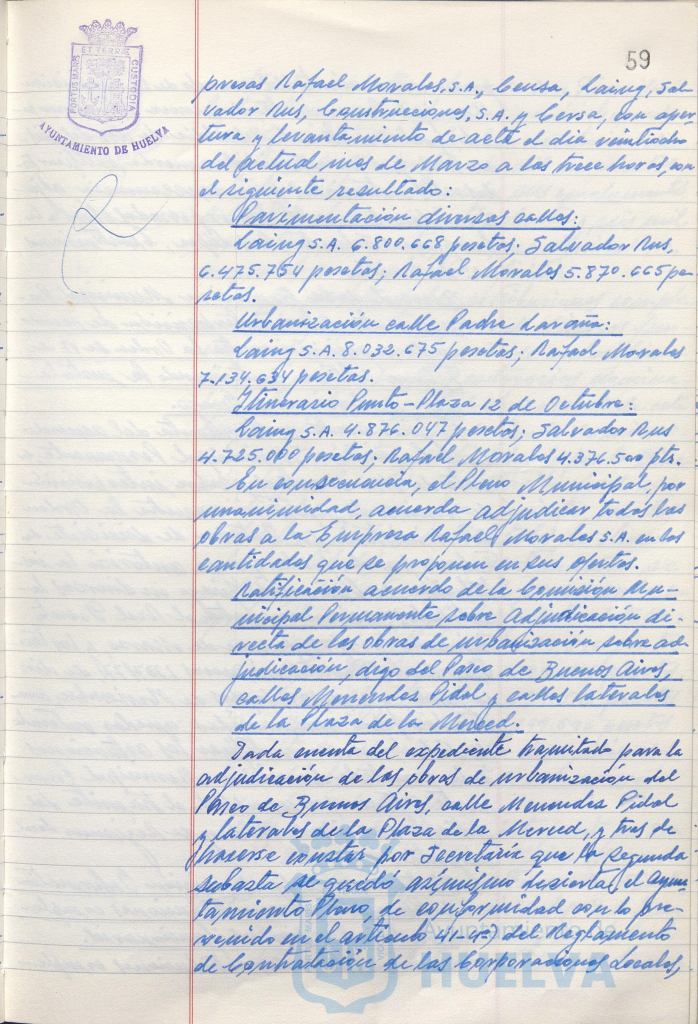 59
PORTUS MARIS ET TERRAE CUSTODIA
AYUNTAMIENTO DE HUELVA
presas Rafael Morales, S.A., Censa, Laing, Sal-
vador Rus, Construcciones, S.A. y Cersa, con aper-
tura y levantamiento de acta el dia veintiocho
del actual mes de Marzo a las trece horas, con
el siguiente resultado:
Pavimentación diversas calles:
Laing S.A. 6.800.668 pesetas; Salvador Rus,
6.475.754 pesetas; Rafael Morales 5.870.665 pe-
setas.
Urbanización calle Padre Laraña:
Laing S.A. 8.032.675 pesetas; Rafael Morales
7.134.634 pesetas.
Itinerario Punto-Plaza 12 de Octubre:
Laing S.A. 4.876.047 pesetas; Salvador Rus
4.725.000 pesetas; Rafael Morales 4.376.500 pts.
En consecuencia, el Pleno Municipal, por
unanimidad, acuerda adjudicar todas las
obras a la Empresa Rafael Morales S.A. en las
cantidades que se proponen en sus ofertas.
Ratificación acuerdo de la Comisión Mu-
nicipal Permanente sobre adjudicación di-
recta de las obras de urbanización sobre ad-
judicación, digo del Paseo de Buenos Aires,
calles Menendez Pidal y calles laterales
de la Plaza de la Merced.
Dada cuenta del expediente tramitado para la
adjudicación de las obras de urbanización del
Paseo de Buenos Aires, calle Menendez Pidal
y laterales de la Plaza de la Merced, y tras de
hacerse constar por Secretaría que la segunda
subasta se quedó asimismo desierta, el Ayun-
tamiento Pleno, de conformidad con lo pre-
venido en el artículo 41-4º) del Reglamento
de Contratación de las Corporaciones Locales,
Ayuntamiento de
HUELVA